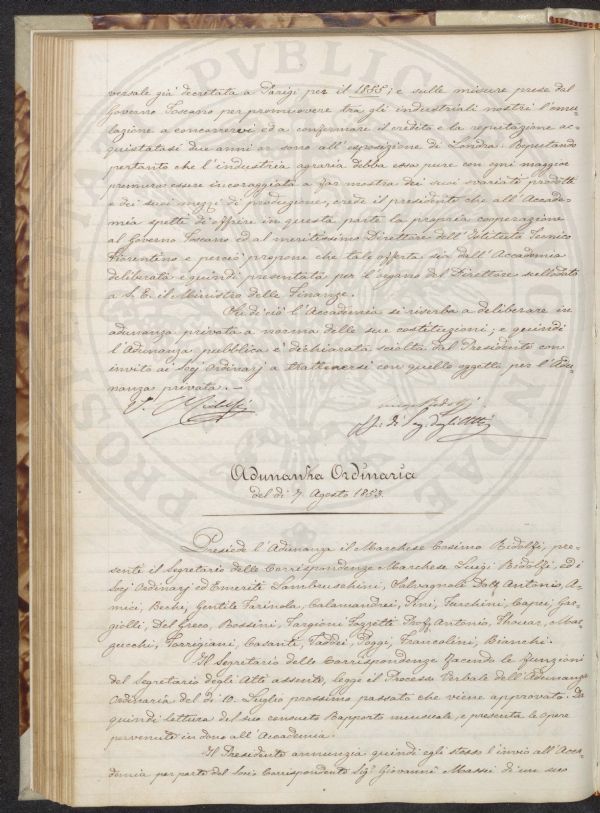 versale già decretata a Parigi per il 1855; e sulle misure prese dal
Governo Toscano per promuovere tra gli industriali nostri l'emu-
lazione a concorrervi ed a confermare il credito e la reputazione ac-
quistatasi due anni or sono all'esposizione di Londra. Reputando
pertanto che l'industria agraria debba essa pure con ogni maggior
premura essere incoraggiata a far mostra dei suoi svariati prodotti
e dei suoi mezzi di produzione, crede il presidente che all'Accade-
mia spetti di offrire in questa parte la propria cooperazione
al Governo Toscano ed al meritissimo Direttore dell'Istituto Tecnico
Fiorentino e perciò propone che tale offerta sia dall'Accademia
deliberata e quindi presentata per l'organo del Direttore sullodato
a S. E. il Ministro delle Finanze.
Su di ciò l'Accademia si riserba a deliberare in
adunanza privata a norma delle sue costituzioni, e quindi
l'Adunanza pubblica è dichiarata sciolta dal Presidente con
invito ai Socj Ordinarj a trattenersi con quello oggetto per l'Adu-
nanza privata. —
C. Ridolfi
Adunanza Ordinaria
del dì 7. Agosto 1853.
Presiede l'Adunanza il Marchese Cosimo Ridolfi, pre-
sente il Segretario delle Corrispondenze Marchese Luigi Ridolfi, ed i
Socj Ordinarj ed Emeriti Lambruschini, Salvagnoli Dott. Antonio, A-
mici, Bechi, Gentile Farinola, Calamandrei, Pini, Turchini, Capei, Gar-
giolli, Del Greco, Rossini, Targioni Tozzetti Prof. Antonio, Thouar, Maz-
Torrigiani, Casanti, Taddei, Poggi, Francolini, Bianchi.
Il Segretario delle Corrispondenze facendo le funzioni
del Segretario degli Atti assente, legge il Processo Verbale dell'Adunanza
Ordinaria del dì 10. Luglio prossimo passato che viene approvato. Dà
quindi lettura del suo consueto Rapporto mensuale, e presenta le opere
pervenute in dono all'Accademia.
Il Presidente annunzia quindi egli stesso l'invio all'Acca-
demia per parte del Socio Corrispondente Sigr. Giovanni Massei di un suo